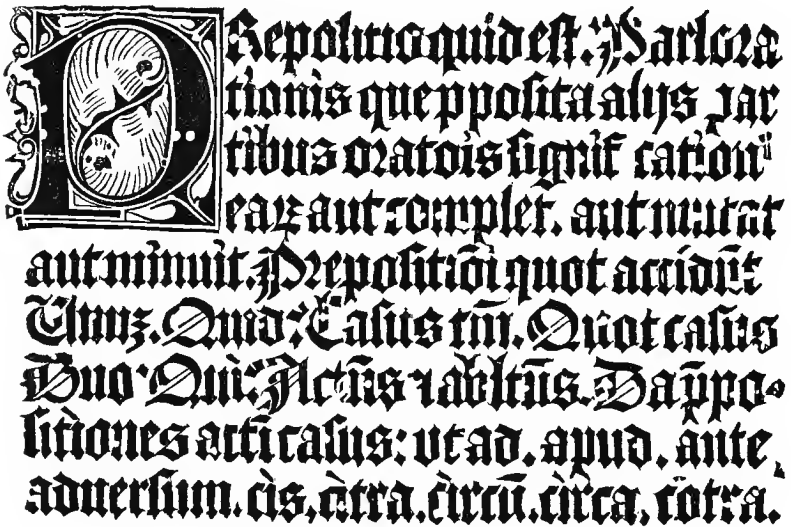 PRepositio quid est. Pars ora
tionis que p̄posita alijs par
tibus oratōis signif̄ catiōn
eaꝝ aut complet. aut mutat
aut minuit. Prepositiōi quot accidūt
Unuz. Quid? Casus tm̄. Quot casus
Duo. Qui? Actūs ⁊ abltūs. Da p̄po-
sitiones acti casus: vt ad. apud. ante,
aduersum. cis. citra. circū. circa. cōtra.